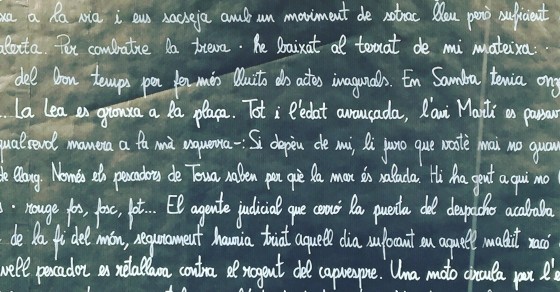 xa a la via i ens sacseja amb un moviment de sotrac lleu però suficient
alerta. Per combatre la treva · He baixat al terrat de mi mateixa ·
del bon temps per fer més lluïts els actes inagurals. En Samba tenia onz
. La Lea es gronxa a la plaça. Tot i l'edat avançada, l'avi Martí es passav
qualsevol manera a la mà esquerra-: Si depèn de mi, li juro que vostè mai no guan
de llarg. Només els pescadors de Tossa saben per què la mar és salada. Hi ha gent a qui no
· rouge fos, fosc, fot... El agente judicial que cerró la puerta del despacho acababa
de la fi del món, segurament hauria triat aquell dia sufocant en aquell maleït raco
vell pescador es retallava contra el rogent del capvespre. Una moto circula per l'e